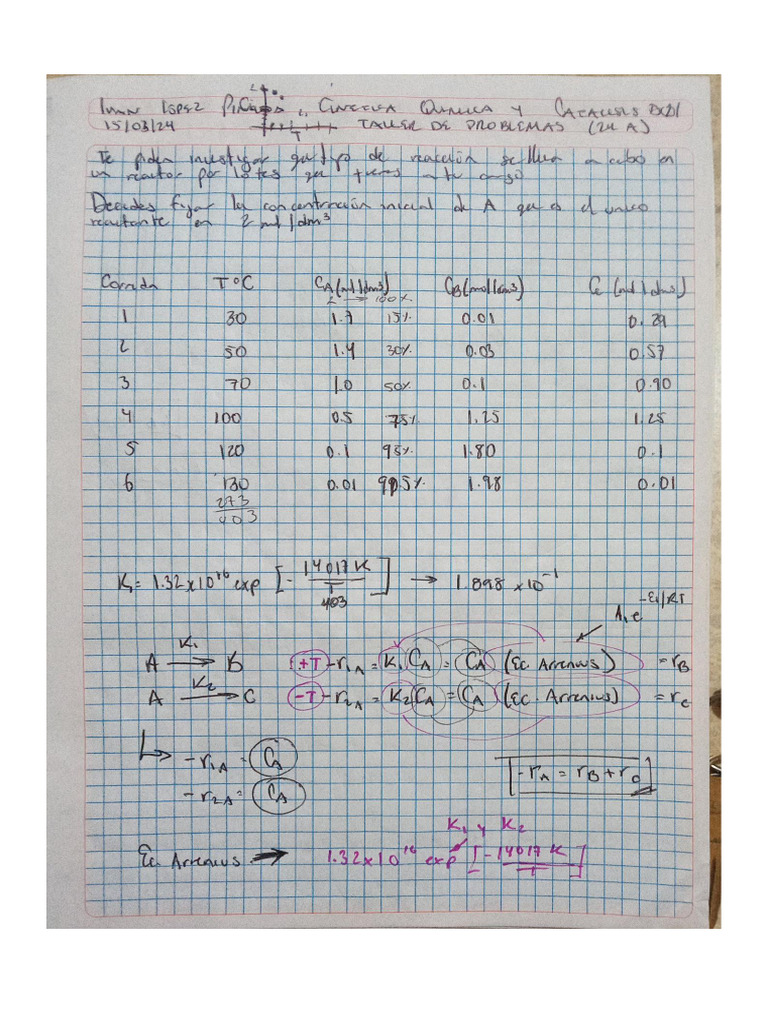 López Cinética Química y Catálisis
15/03/24 T TALLER DE PROBLEMAS (2H A)
Te piden investigar que tipo de reacción se lleva a cabo en
un reactor por lotes que tienes a tu cargo
Decides fijar la concentración inicial de A que es el unico
reactante en 2 mol/dm³
Corrida T°C CA(mol/dm3) CB(mol/dm3) CC(mol/dm3)
2 → 100%
1 30 1.7 15% 0.01 0.29
2 50 1.4 30% 0.03 0.57
3 70 1.0 50% 0.1 0.90
4 100 0.5 75% 1.25 1.25
5 120 0.1 95% 1.80 0.1
6 130 0.01 1.98 0.01
273
403
K1= 1.32x10^16 exp [-14017 K / T] → 1.898 x10^-1
403
A1 e^-E1/RT
A K1→ B +T -r1A = K1 CA = CA (Ec Arrenius) = rB
A K2→ C -T -r2A = K2 CA = CA (Ec. Arrenius) = rC
↳ -r1A = CA
-r2A = CA
-rA = rB + rC
K1 y K2
Ec Arrenius → 1.32x10^16 exp [-14017 K / T]